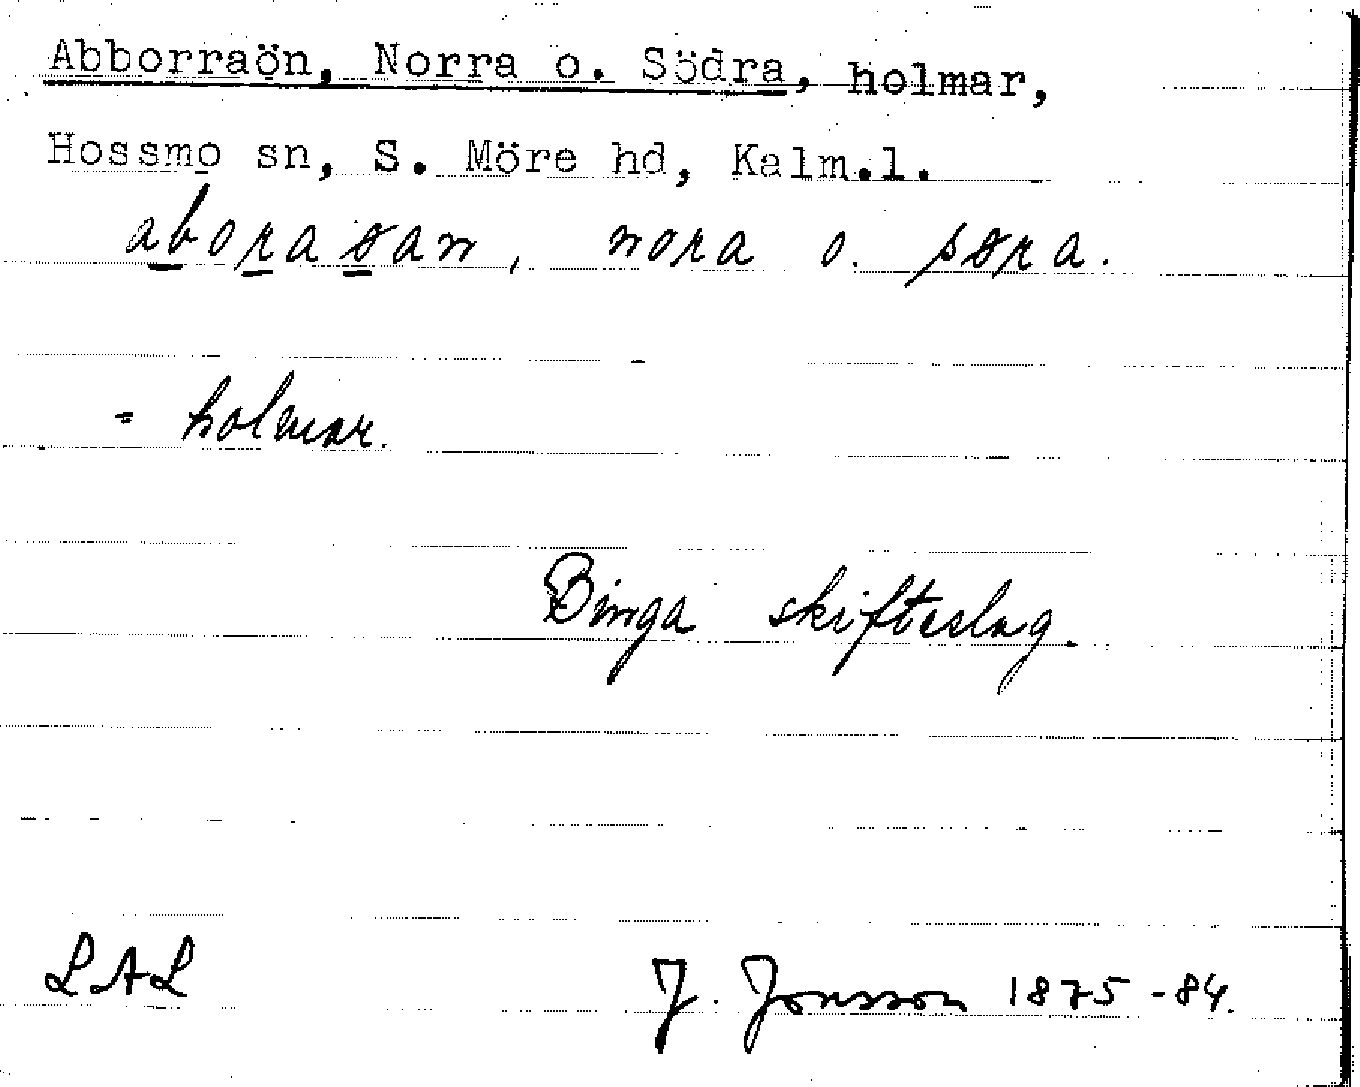 Abborraön, Norra o. Södra, holmar,
Hossmo sn, S. Möre hd, Kalm.l.
aboraøan, nora o. søra.
= holmar.
Binga skifteslag.
LAL J. Jonsson 1875-84.